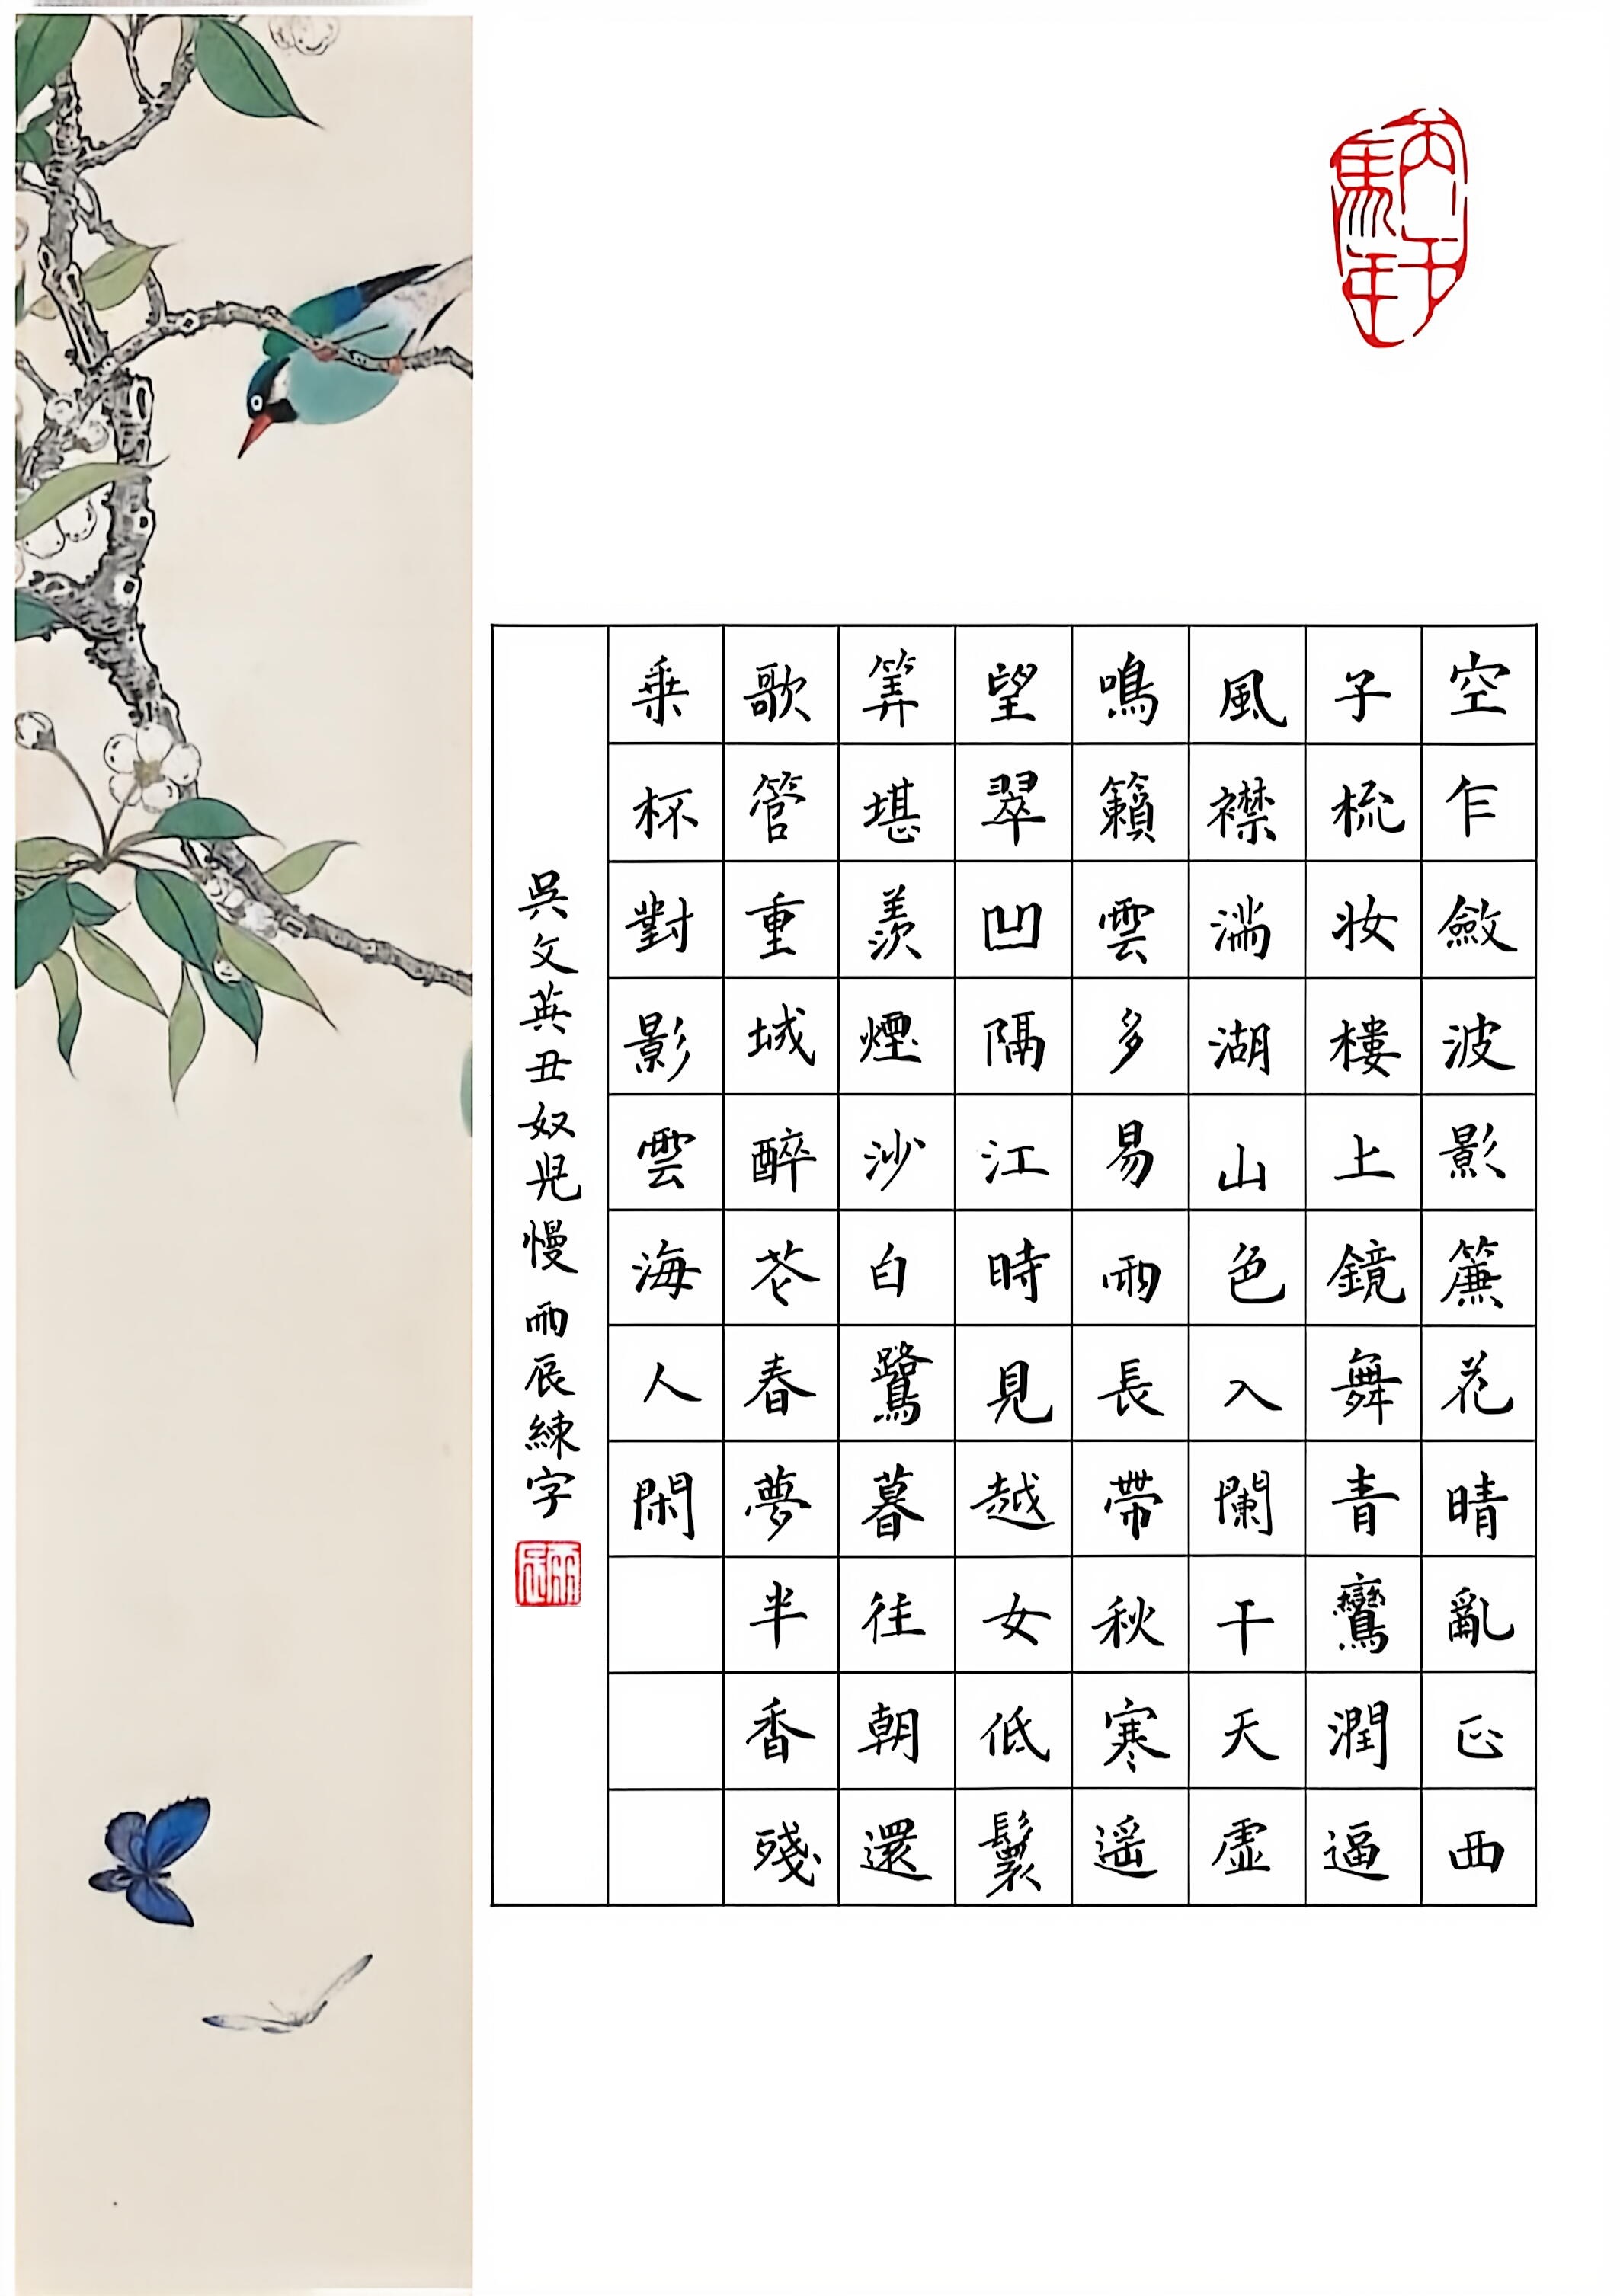 丙午馬年
空乍斂波影簾花晴亂正西
子梳妆樓上鏡舞青鸞潤逼
風襟滿湖山色入闌干天虛
鳴籟雲多易雨長帶秋寒遥
望翠凹隔江時見越女低鬟
筭堪羨煙沙白鷺暮往朝還
歌管重城醉花春夢半香殘
乗杯對影雲海人閑
吳文英丑奴兒慢 雨辰練字
雨辰